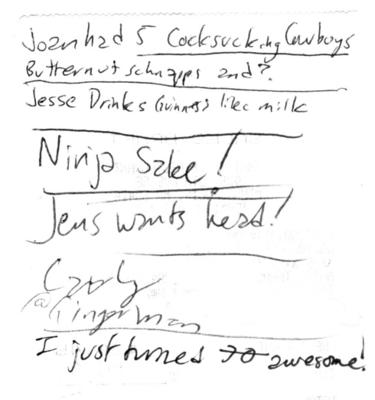 Joan had 5 Cocksucking Cowboys
Butternut schnapps and?
Jesse Drinks Guinness like milk
Ninja Sake!
Jens wants head!
@Gingerman
I just turned 70 awesome!